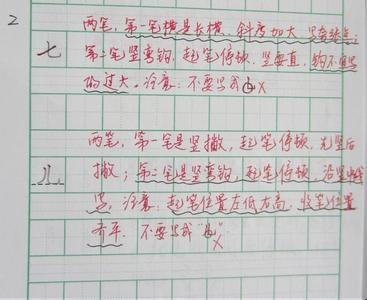 2
两笔，第一笔横是长横，斜度加大
七 第二笔竖弯钩，起笔停顿，竖要直，钩不宜
的过大。注意：不要写成
两笔，第一笔是竖撇，起笔停顿，先竖后
儿 撇；第二笔是竖弯钩，起笔停顿，沿竖中线
注意，起笔位置左低右高，收笔位置
齐平．不要写成